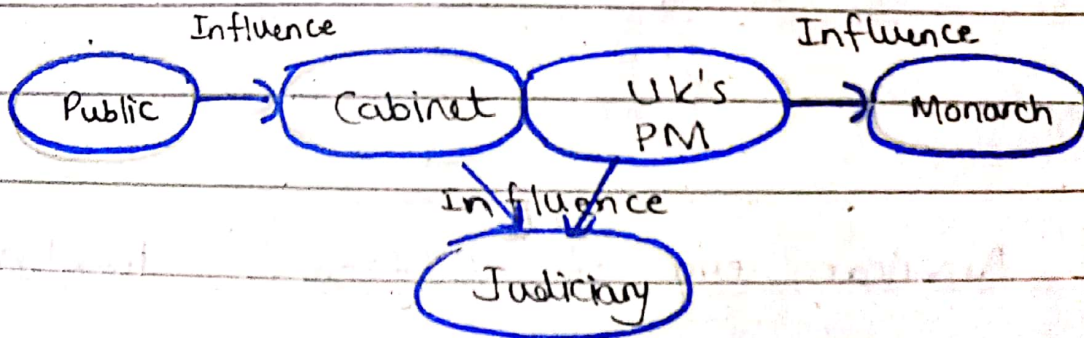 Influence
Influence
Public
Cabinet
UK's
PM
Monarch
Influence
Judiciary